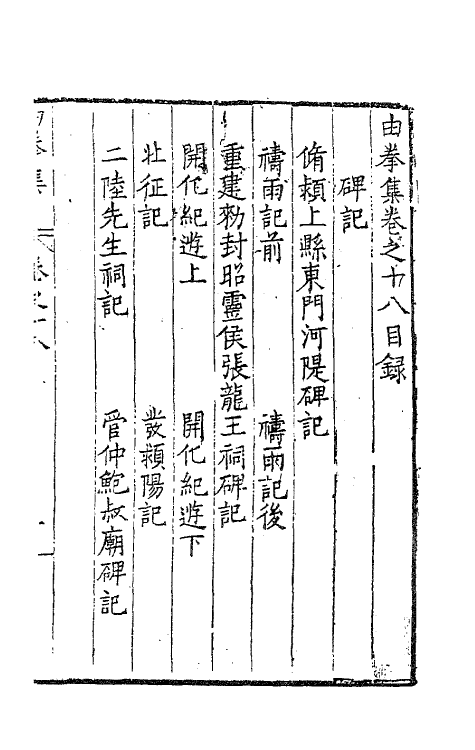 由拳集卷之十八目錄
碑記
脩潁上縣東門河隄碑記
禱雨記前　禱雨記後
重建勑封昭靈侯張龍王祠碑記
開化紀遊上　開化紀遊下
壯征記　發潁陽記
二陸先生祠記　管仲鮑叔廟碑記